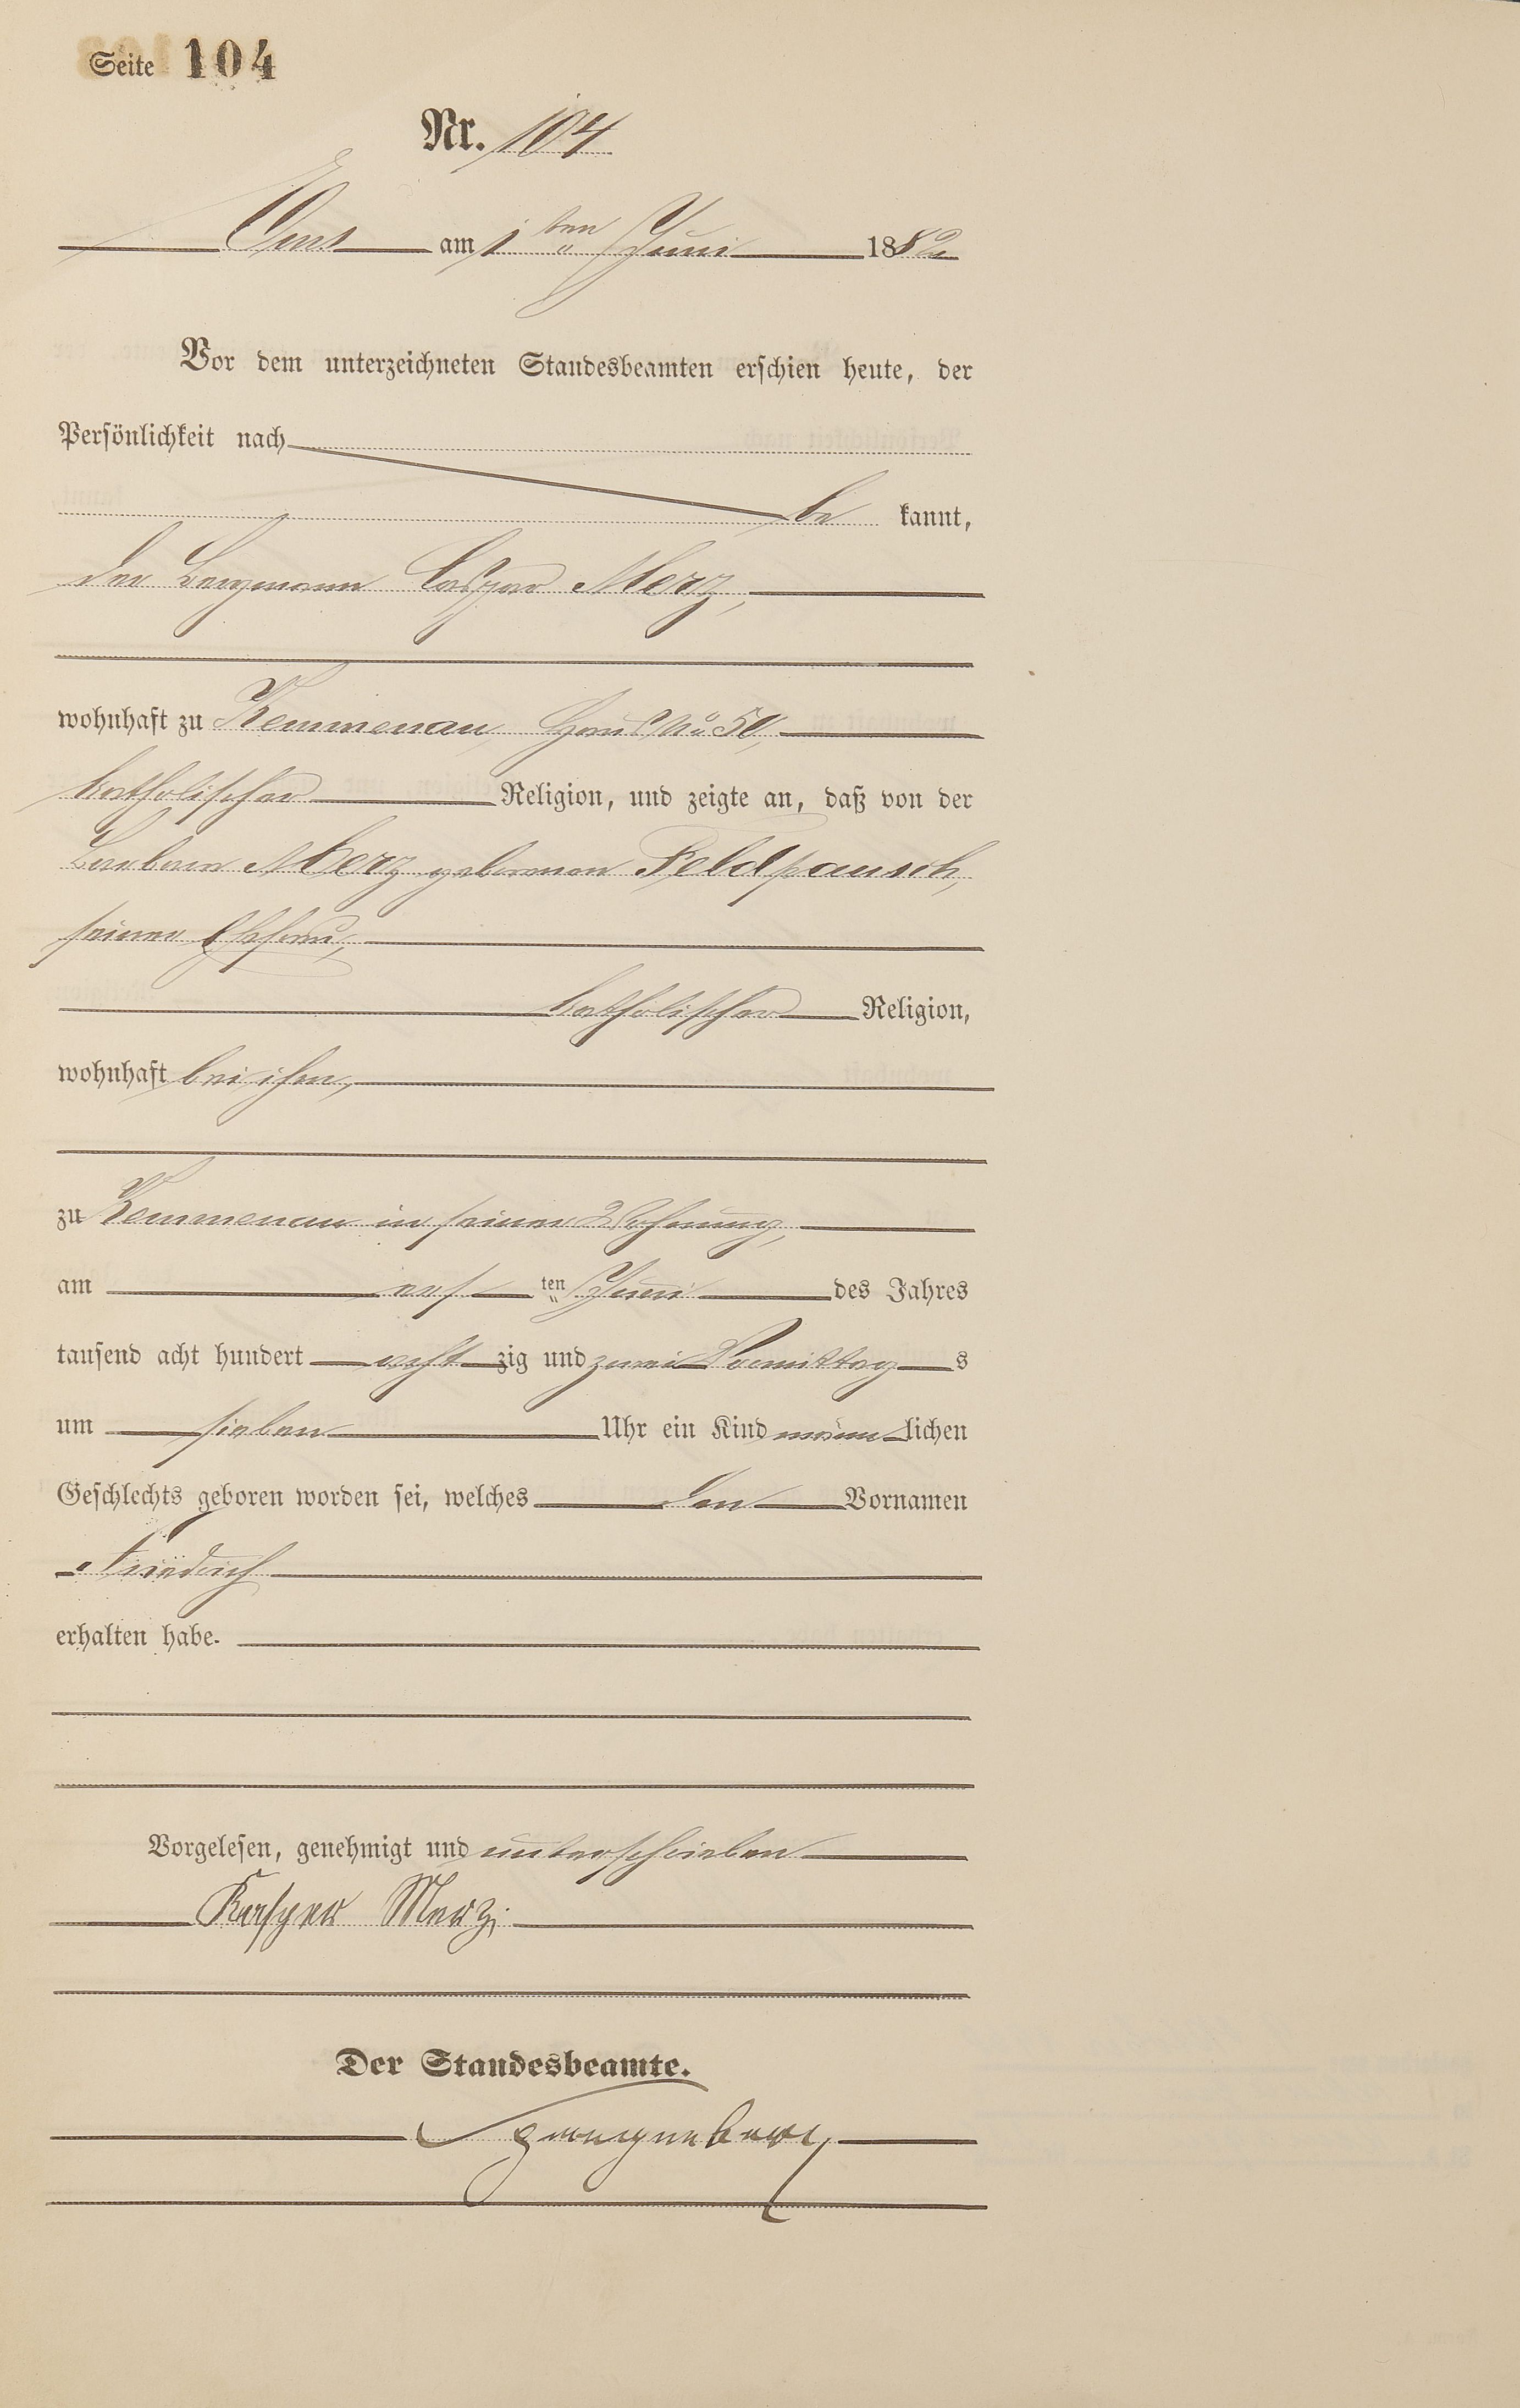 Seite 104
Nr. 104
Ems am 1ten Juni 1882
Vor dem unterzeichneten Standesbeamten erschien heute, der
Persönlichkeit nach
be kannt,
der Bergmann Caspar Merz,
wohnhaft zu Kemmenau, Haus No 50,
katholischer Religion, und zeigte an, daß von der
Barbara Merz geborenen Feldpausch,
seiner Ehefrau,
katholischer Religion,
wohnhaft bei ihm,
zu Kemmenau in seiner Wohnung,
am ersten Juni des Jahres
tausend acht hundert acht zig und zwei Vormittag s
um sieben Uhr ein Kind männ lichen
Geschlechts geboren worden sei, welches den Vornamen
Friedrich
erhalten habe.
Vorgelesen, genehmigt und unterschrieben
Kasper Merz.
Der Standesbeamte.